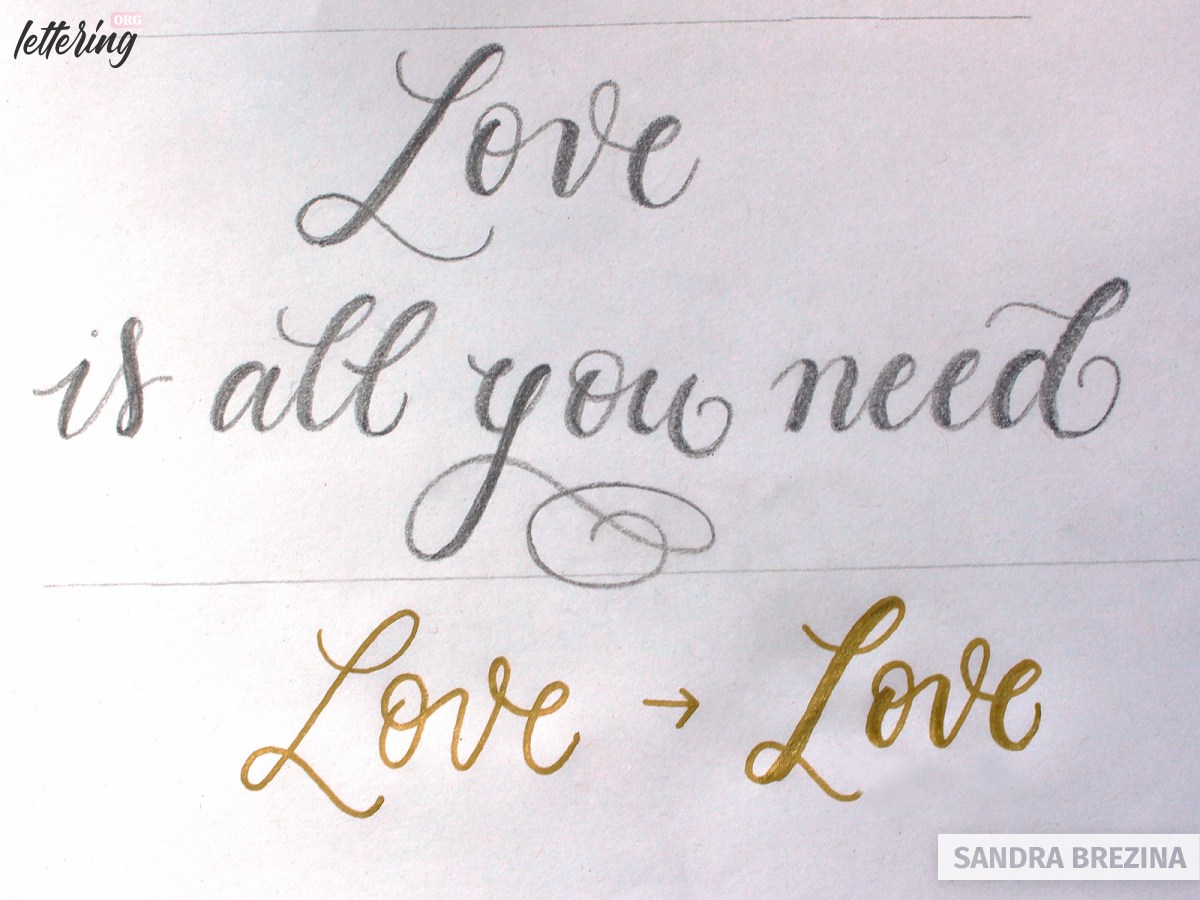 lettering ORG
Love
is all you need
Love → Love
SANDRA BREZINA